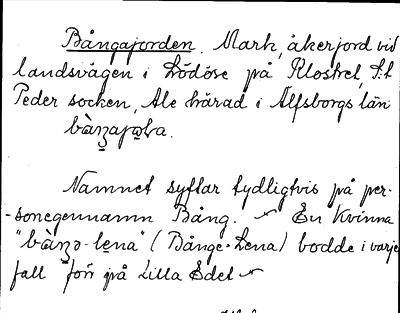 Bångajorden. Mark, åkerjord vid
landsvägen i Lödöse på Klostret, S:t
Peder socken, Ale härad i Älfsborgs län
Namnet syftar tydligtvis på per-
-sonegennamn Bång. En Kvinna
(Bånge-Lena) bodde i varje
fall förr på Lilla Edet